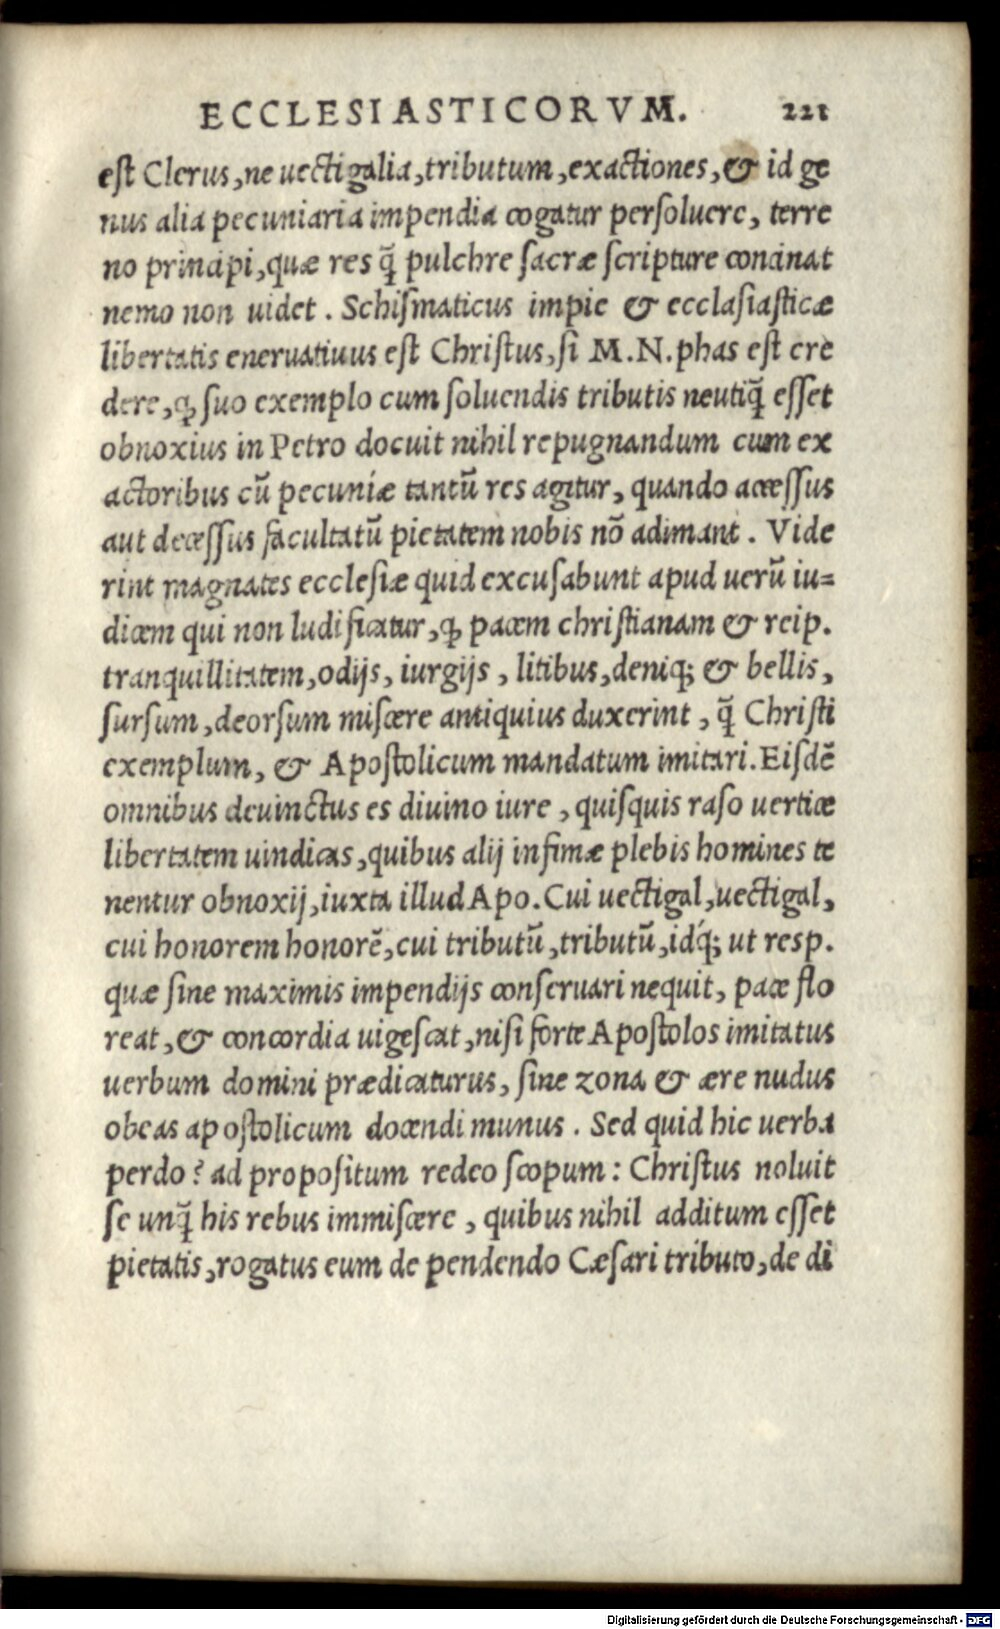 ECCLESIASTICORVM. 221
est Clerus, ne uectigalia, tributum, exactiones, & id ge
nus alia pecuniaria impendia cogatur persoluere, terre
no principi, quæ res q̃ pulchre sacræ scripture concinat
nemo non uidet. Schismaticus impie & ecclasiasticæ
libertatis eneruatiuus est Christus, si M.N. phas est cre
dere, ꝙ suo exemplo cum soluendis tributis neutiq̃ esset
obnoxius in Petro docuit nihil repugnandum cum ex
actoribus cũ pecuniæ tantũ res agitur, quando accessus
aut decessus facultatũ pietatem nobis nõ adimant. Vide
rint magnates ecclesiæ quid excusabunt apud uerũ iu=
dicem qui non ludificatur, ꝙ pacem christianam & reip.
tranquillitatem, odijs, iurgijs, litibus, deniq; & bellis,
sursum, deorsum miscere antiquius duxerint, q̃ Christi
exemplum, & Apostolicum mandatum imitari. Eisdẽ
omnibus deuinctus es diuino iure, quisquis raso uertice
libertatem uindicas, quibus alij infimæ plebis homines te
nentur obnoxij, iuxta illud Apo. Cui uectigal, uectigal,
cui honorem honorẽ, cui tributũ, tributũ, idq́; ut resp.
quæ sine maximis impendijs conseruari nequit, pace flo
reat, & concordia uigescat, nisi forte Apostolos imitatus
uerbum domini prædicaturus, sine zona & ære nudus
obeas apostolicum docendi munus. Sed quid hic uerba
perdo? ad propositum redeo scopum: Christus noluit
se unq̃ his rebus immiscere, quibus nihil additum esset
pietatis, rogatus eum de pendendo Cæsari tributo, de di
Digitalisierung gefördert durch die Deutsche Forschungsgemeinschaft - DFG